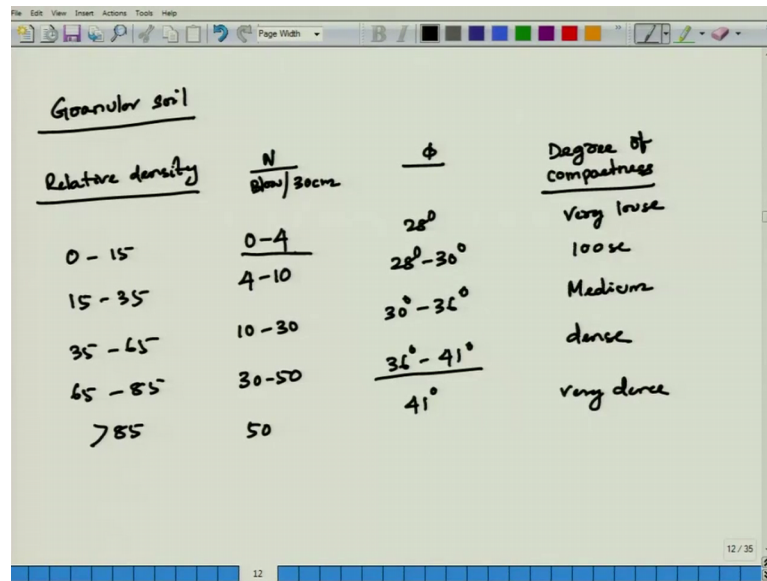 File Edit View Insert Actions Tools Help
Page Width
B I
Granular soil
Relative density N Blow/30cm φ Degree of compactness
0 - 15 0-4 28° Very loose
15 - 35 4-10 28°-30° loose
35 - 65 10-30 30°-36° Medium
65 - 85 30-50 36°-41° dense
>85 50 41° very dense
12 / 35
12